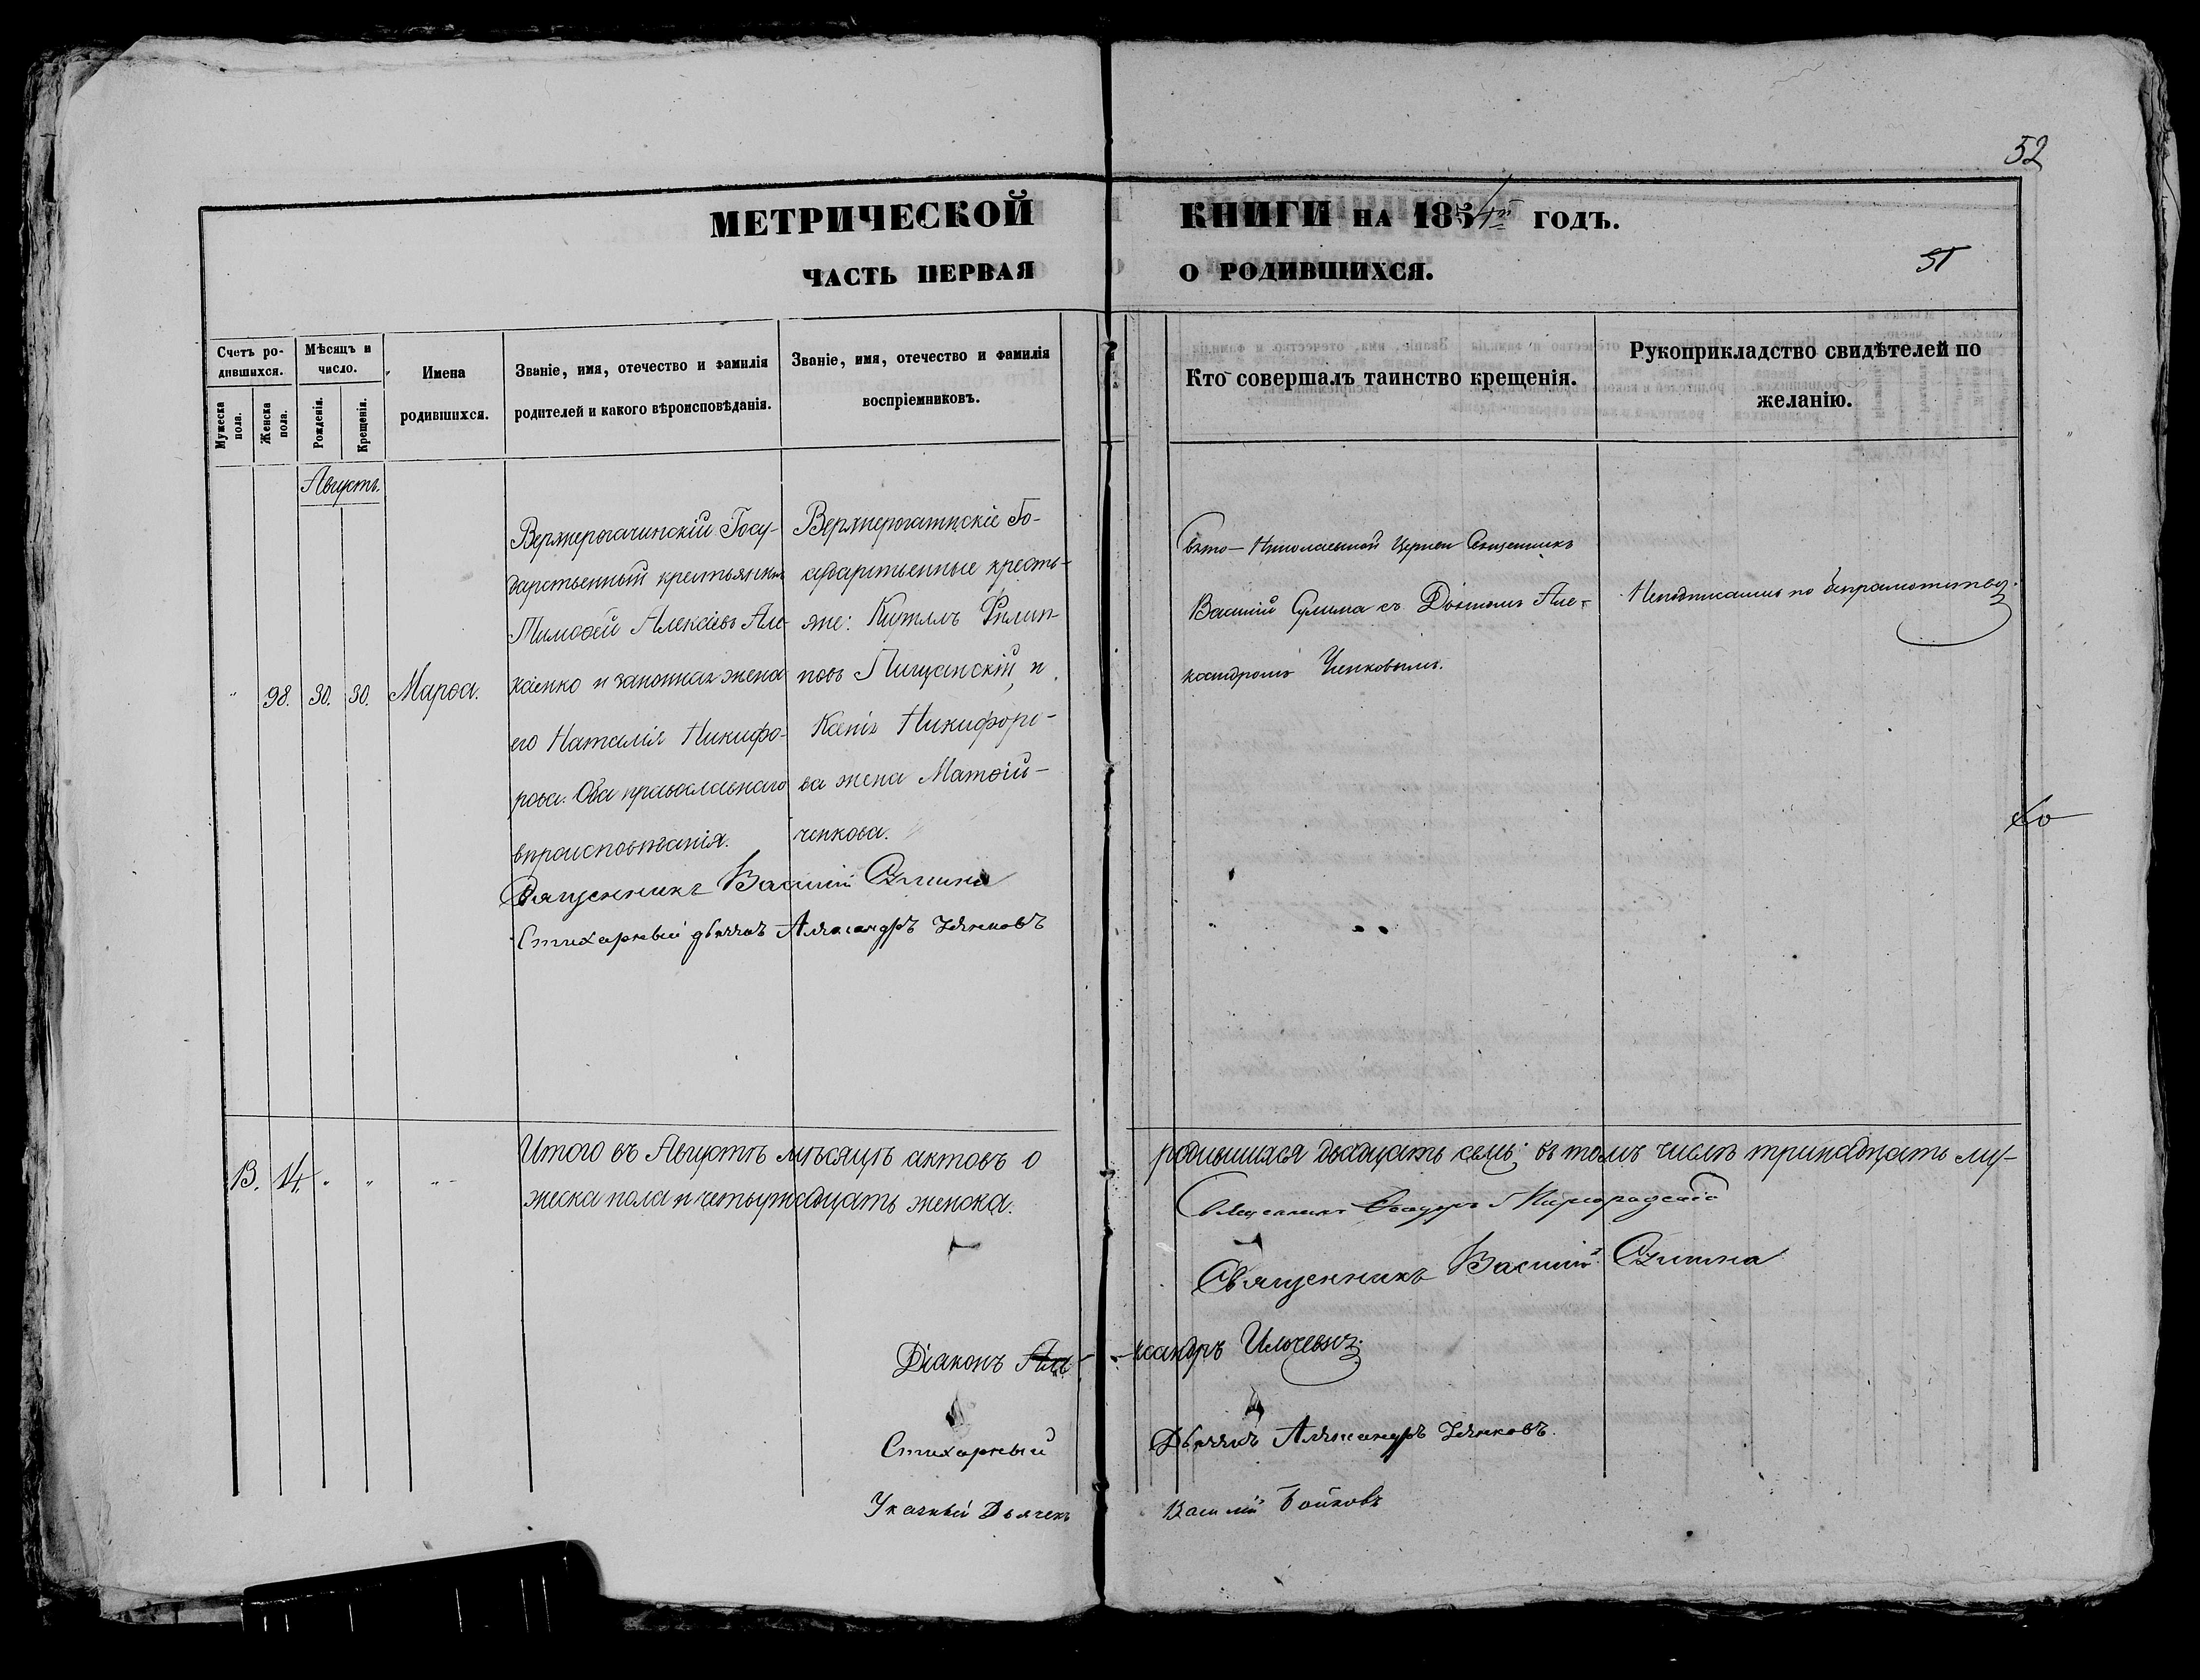 52
МЕТРИЧЕСКОЙ КНИГИ НА 1854й ГОДЪ.
ЧАСТЬ ПЕРВАЯ О РОДИВШИХСЯ.
51
Счетъ ро-
дившихся.
Мужеска
пола.
Женска
пола.
Мѣсяцъ и
число.
Рожденія.
Крещенія.
Имена
родившихся.
Званіе, имя, отечество и фамилія
родителей и какого вѣроисповѣданія.
Званіе, имя, отечество и фамилія
воспріемниковъ.
Кто совершалъ таинство крещенія.
Рукоприкладство свидѣтелей по
желанію.
Августъ.
" 98. 30. 30. Марѳа.
Верхнерогачинскій Госу-
дарственный крестьянинъ
Тимоѳей Алексѣевъ Але-
ксѣенко и законная жена
его Наталія Никифо-
рова. Оба православнаго
вѣроисповѣданія.
Верхнерогачинскіе Го-
сударственные кресть-
яне: Филип-
повъ Пищанскій, и
Ксенія Никифоро-
ва жена Матѳій-
ченкова.
Свято-Николаевской Церкви Священникъ
Василій Сулима съ Дьячкомъ Але-
ксандромъ Ченковымъ.
Неподписались по безграмотству.
Священникъ Василій Сулима
Стихарный дьячокъ Александръ Ченковъ
13. 14. " " "
Итого въ Августѣ мѣсяцѣ актовъ о родившихся двадцать семь; въ томъ числѣ тринадцать му-
жеска пола и четырнадцать женска.
Священникъ Ѳеодоръ Миргородскій
Священникъ Василій Сулима
Діаконъ Але-ксандръ Ильчевичъ.
Стихарный Дьячокъ Александръ Ченковъ.
Указный Дьячекъ Василій Бойковъ